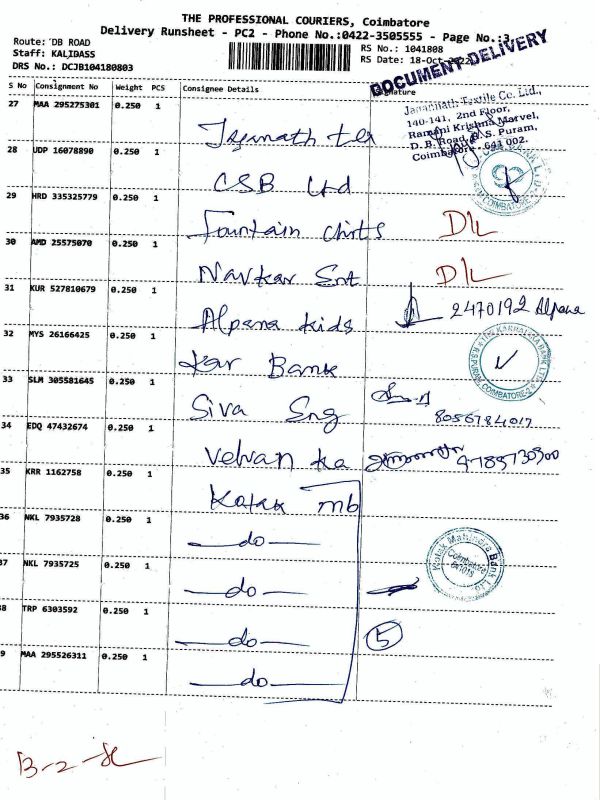 THE PROFESSIONAL COURIERS, Coimbatore
Delivery Runsheet - PC2 - Phone No.:0422-3505555 - Page No.:3
Route: DB ROAD
Staff: KALIDASS
DRS No.: DCJB104180803
RS No.: 1041808
RS Date: 18-Oct-2022
DOCUMENT DELIVERY
S No Consignment No Weight PCS Consignee Details Signature
27 MAA 295275301 0.250 1
Jaganath Textile Co. Ltd.,
140-141, 2nd Floor,
Ramani Krishna Marvel,
D. B. Road, R. S. Puram,
Coimbatore - 641 002.
28 UDP 16078890 0.250 1 CSB Ltd
29 HRD 335325779 0.250 1 Fountain D/L
30 AMD 25575070 0.250 1 Navkar D/L
31 KUR 527810679 0.250 1 Alpana kids 2470192 Alpana
32 MYS 26166425 0.250 1 Kar Bank
33 SLM 305581645 0.250 1 Siva Eng
34 EDQ 47432674 0.250 1
35 KRR 1162758 0.250 1 Kotak mb
36 NKL 7935728 0.250 1 do
37 NKL 7935725 0.250 1 do
Kotak Mahindra Bank Ltd
Coimbatore
38 TRP 6303592 0.250 1 do 5
39 MAA 295526311 0.250 1 do